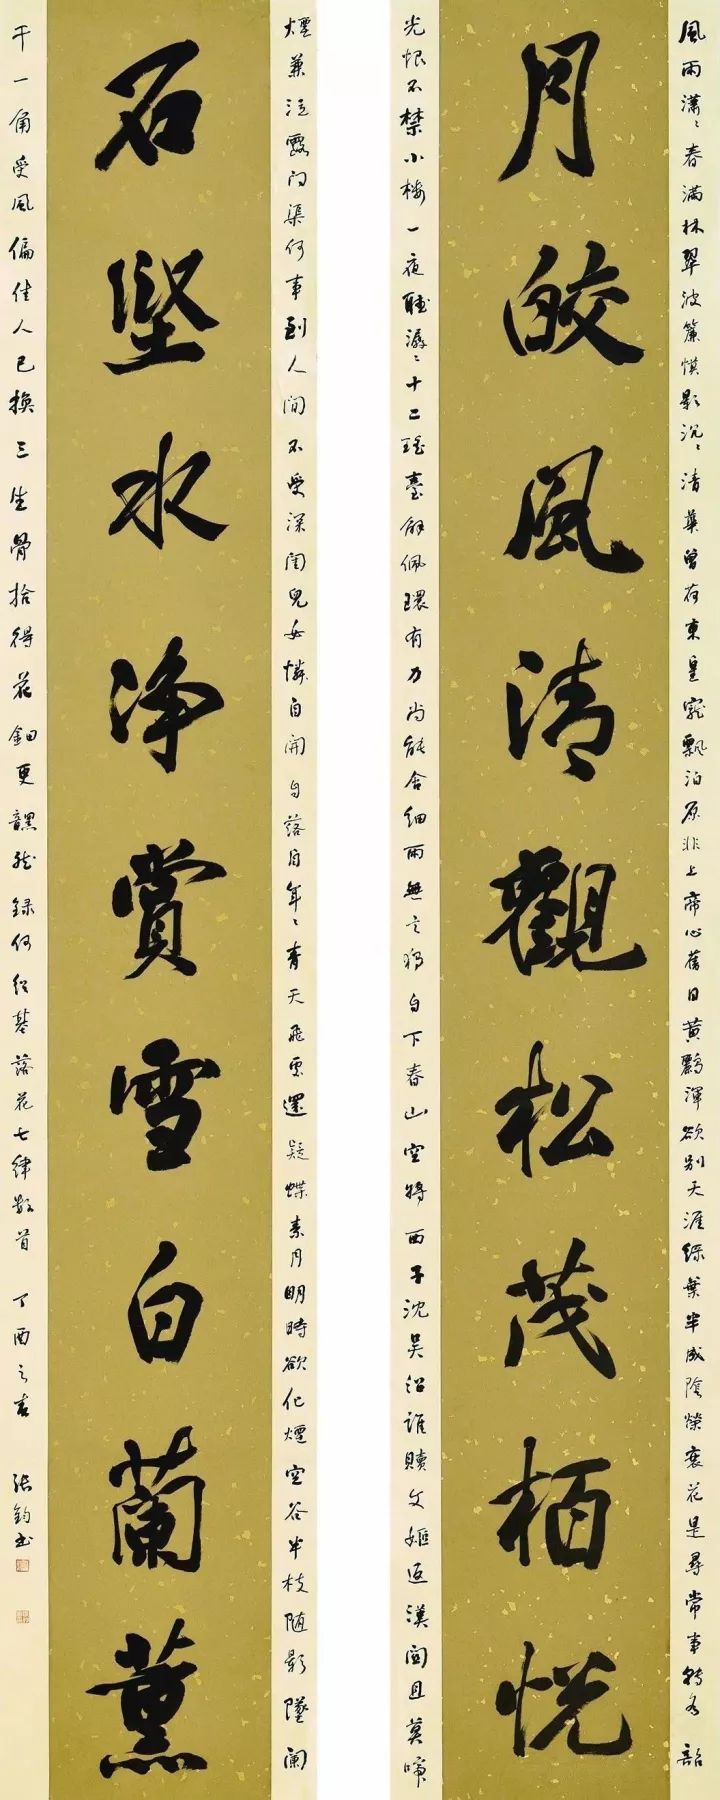 風雨瀟〻春滿林翠波簾幙影沉〻清華曾荷東皇寵飄泊原非上帝心舊日黃鸝渾欲別天涯綠葉半成陰榮衰花是尋常事轉為韶
月皎風清觀松茂栢悦
光恨不禁小樓一夜聽潺〻十二瑤臺解佩環有力尚能含細雨無言獨自下春山空將西子沈吳沼誰贖文姬返漢關且莫啼
煙兼泣露問渠何事到人間不受深閨兒女憐自開自落自年〻青天飛處還疑蝶素月明時欲化煙空谷半枝隨影墜闌
石堅水净賞雪白蘭薰
干一角受風偏佳人已換三生骨拾得花鈿更黯然錄何紹基落花七律數首 丁酉之 張鈞書